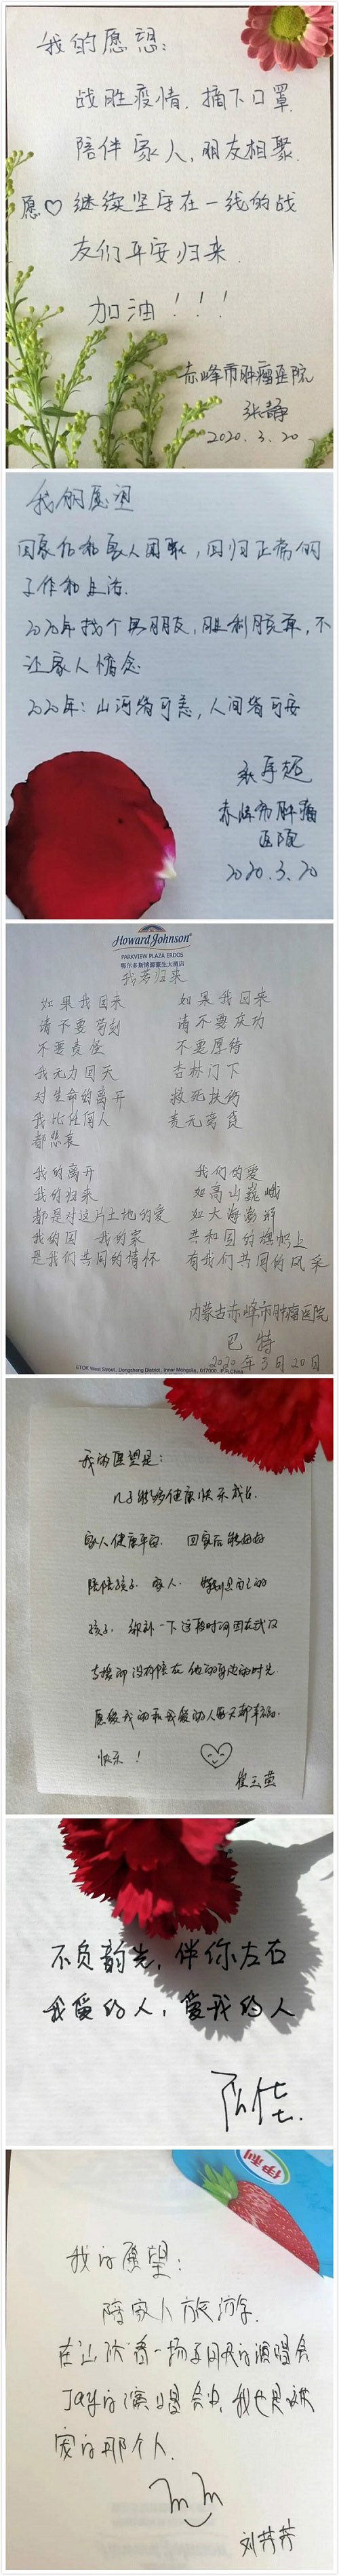 我的愿望：
战胜疫情，摘下口罩
陪伴家人，朋友相聚
愿♡继续坚守在一线的战
友们平安归来
加油！！！
赤峰市肿瘤医院
张静
2020.3.20
我的愿望
回家后和家人团聚，回归正常的
工作和生活.
2020年找个男朋友，胜利脱单，不
让家人惦念
2020年：山河皆可恙，人间皆可安
赤峰市肿瘤
医院
2020.3.20
Howard Johnson
PARKVIEW PLAZA ERDOS
鄂尔多斯博源豪生大酒店
我若归来
如果我回来
请不要苛刻
不要责怪
我无力回天
对生命的离开
我比任何人
都悲哀
如果我回来
请不要庆功
不要厚待
杏林门下
救死扶伤
责无旁贷
我的离开
我的归来
都是对这片土地的爱
我的国 我的家
是我们共同的情怀
我们的爱
如高山巍峨
如大海澎湃
共和国的旗帜上
有我们共同的风采
内蒙古赤峰市肿瘤医院
巴特
2020年3月20日
ETOK West Street, Dongsheng District, Inner Mongolia, 017000, P.R.China
我的愿望是：
儿子能够健康快乐成长.
家人健康平安. 回家后能好好
陪陪孩子. 家人. 特别是自己的
孩子. 弥补一下这段时间因在武汉
支援而没有陪在他的身边的时光.
愿爱我的和我爱的人每天都幸福.
快乐！
不负韶光，伴你左右
我爱的人，爱我的人
伊利
我的愿望：
陪家人旅游.
在让你看一场周杰的演唱会
Jay的演唱会, 我也是
家的那个人.
刘芳芳